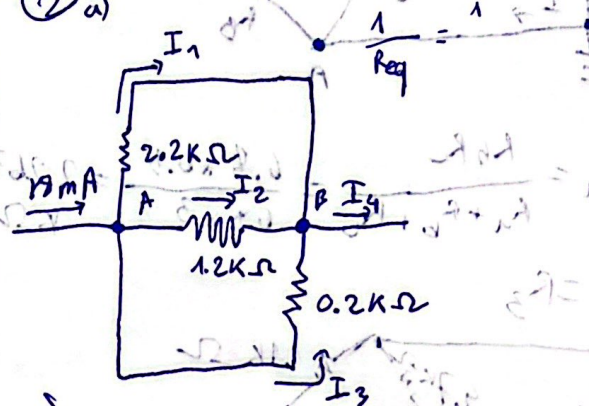 2) a)
I1
1/Req =
2.2KΩ
18mA
A
I2
B
I4
1.2KΩ
0.2KΩ
I3